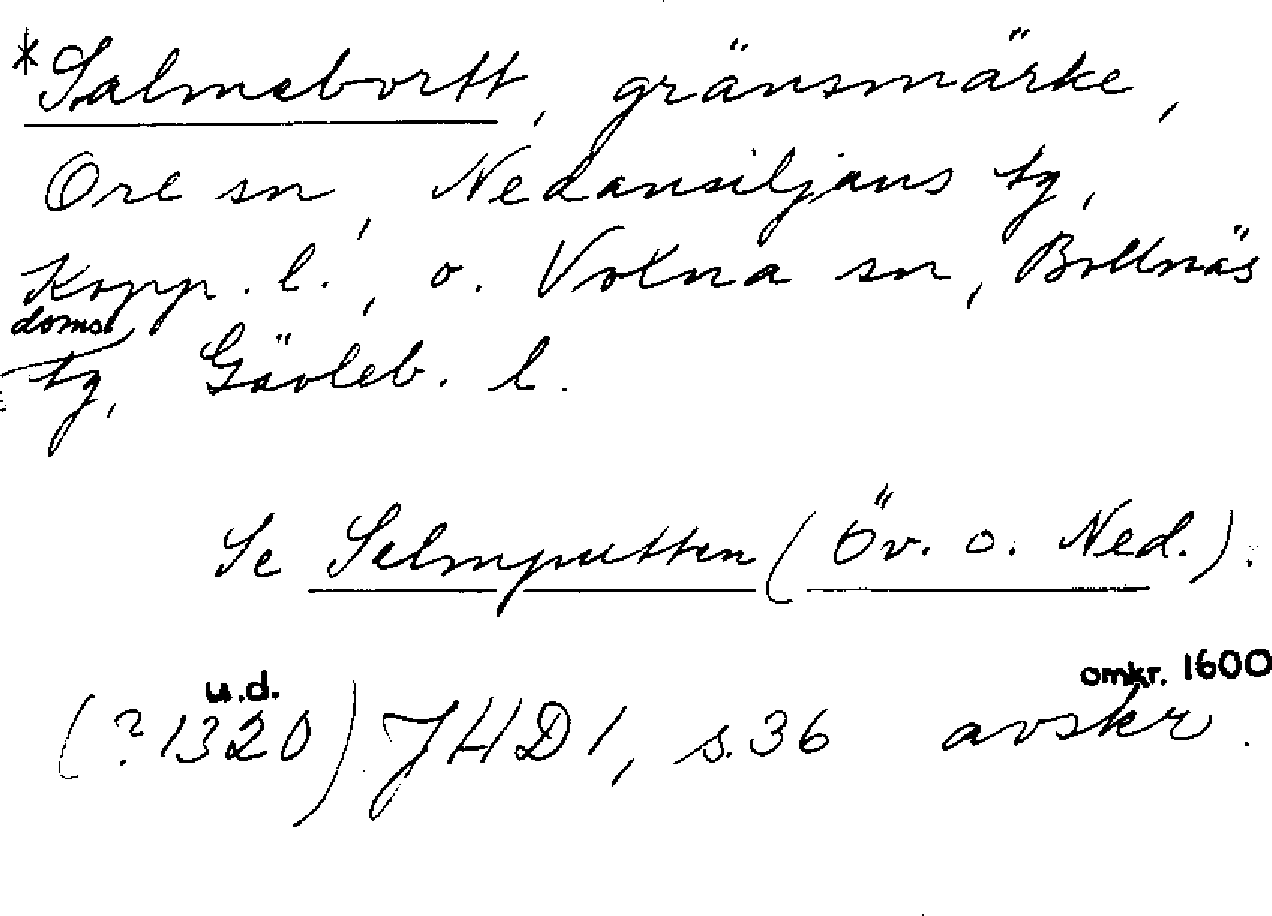 *Salmebortt, gränsmärke,
Ore sn, Nedansiljans tg,
Kopp. l., o. Voxna sn, Bollnäs
doms.
tg, Gävleb. l.
Se Selmputten (Öv. o. Ned.).
u.d. omkr. 1600
(?1320) JHD 1, s. 36 avskr.